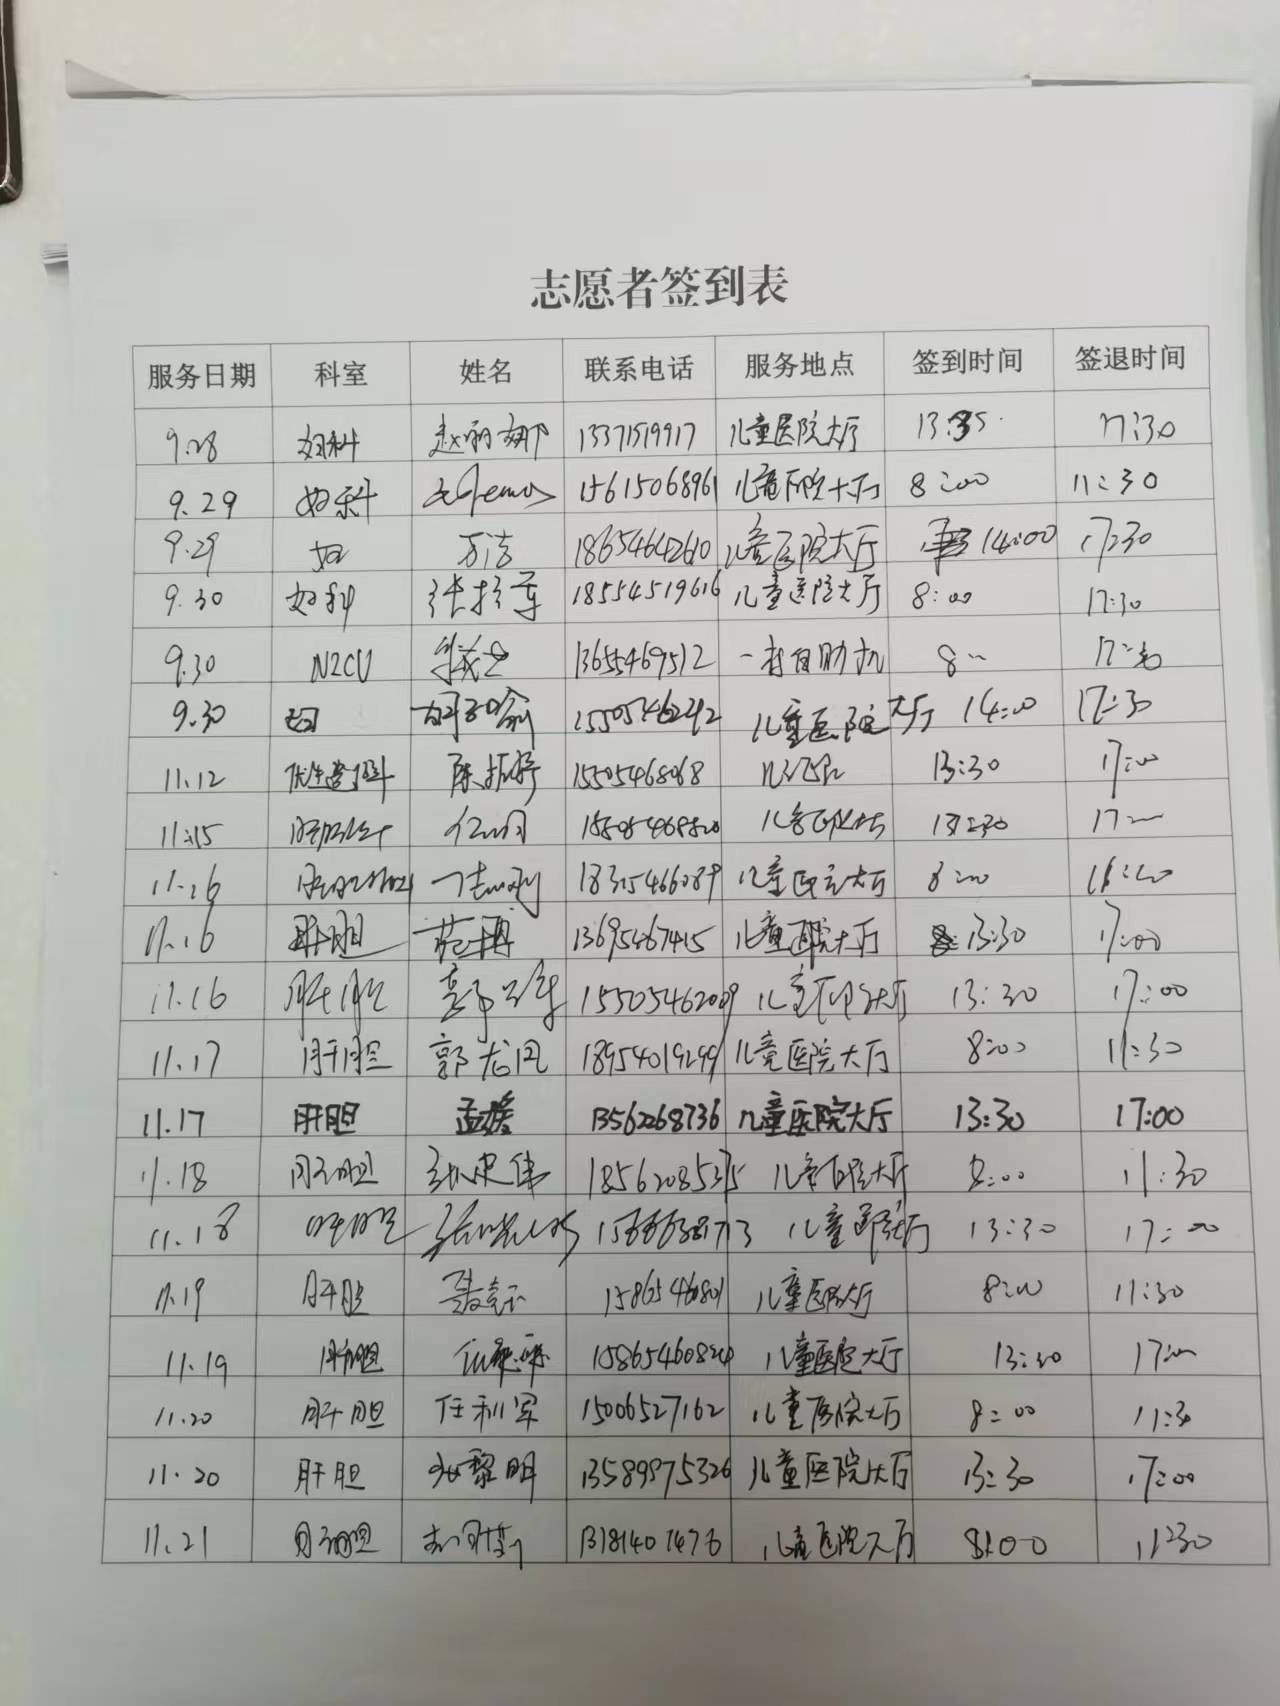 志愿者签到表
服务日期 科室 姓名 联系电话 服务地点 签到时间 签退时间
9.28 妇科 赵丽娜 13371519917 儿童医院大厅 13:35 17:30
9.29 妇科 15615068961 儿童医院大厅 8:00 11:30
9.29 妇 万洁 18654642610 儿童医院大厅 14:00 17:30
9.30 妇科 18554519616 儿童医院大厅 8:00 17:30
9.30 N2CU 13655469512 一楼自助机 8:00 17:30
9.30 妇 胡子喻 15505462292 儿童医院大厅 14:00 17:30
11.12 陈振婷 15505468068 13:30 17:00
11.15 13:30 17:00
11.16 18315466089 儿童医院大厅 8:00
11.16 肝胆 范博 13695467415 儿童医院大厅 13:30 17:00
11.16 肝胆 15505462009 儿童医院大厅 13:30 17:00
11.17 肝胆 郭龙凤 18954019299 儿童医院大厅 8:00 11:30
11.17 肝胆 孟媛 13562268736 儿童医院大厅 13:30 17:00
11.18 肝胆 儿童医院大厅 8:00 11:30
11.18 肝胆 儿童医院大厅 13:30 17:00
11.19 肝胆 聂克 15865460801 儿童医院大厅 8:00 11:30
11.19 肝胆 15865460824 儿童医院大厅 13:30 17:00
11.20 肝胆 任利军 15006527162 儿童医院大厅 8:00 11:30
11.20 肝胆 黎明 13589975326 儿童医院大厅 13:30 17:00
11.21 肝胆 13181407476 儿童医院大厅 8:00 11:30